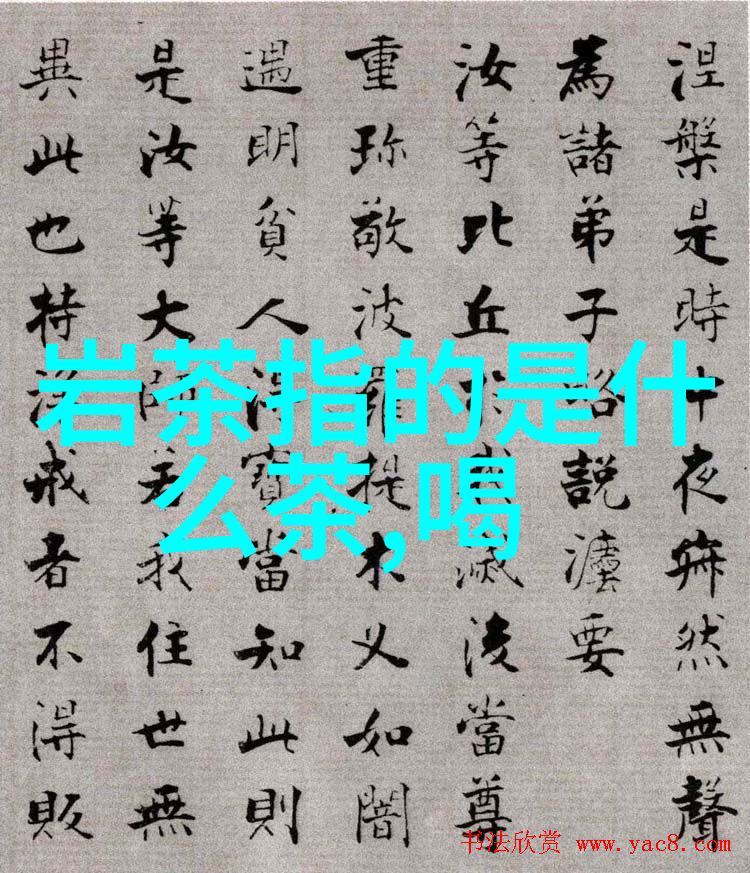 涅槃是時中夜寂然無聲
為諸弟子略説灋要
汝等比丘於我滅後當尊
重珎敬波羅提木叉如闇
遇明貧人得寶當知此則
是汝等大師若我住世無
異此也持淨戒者不得販
岩茶指的是什
么茶,喝
书法欣赏 www.yac8.com